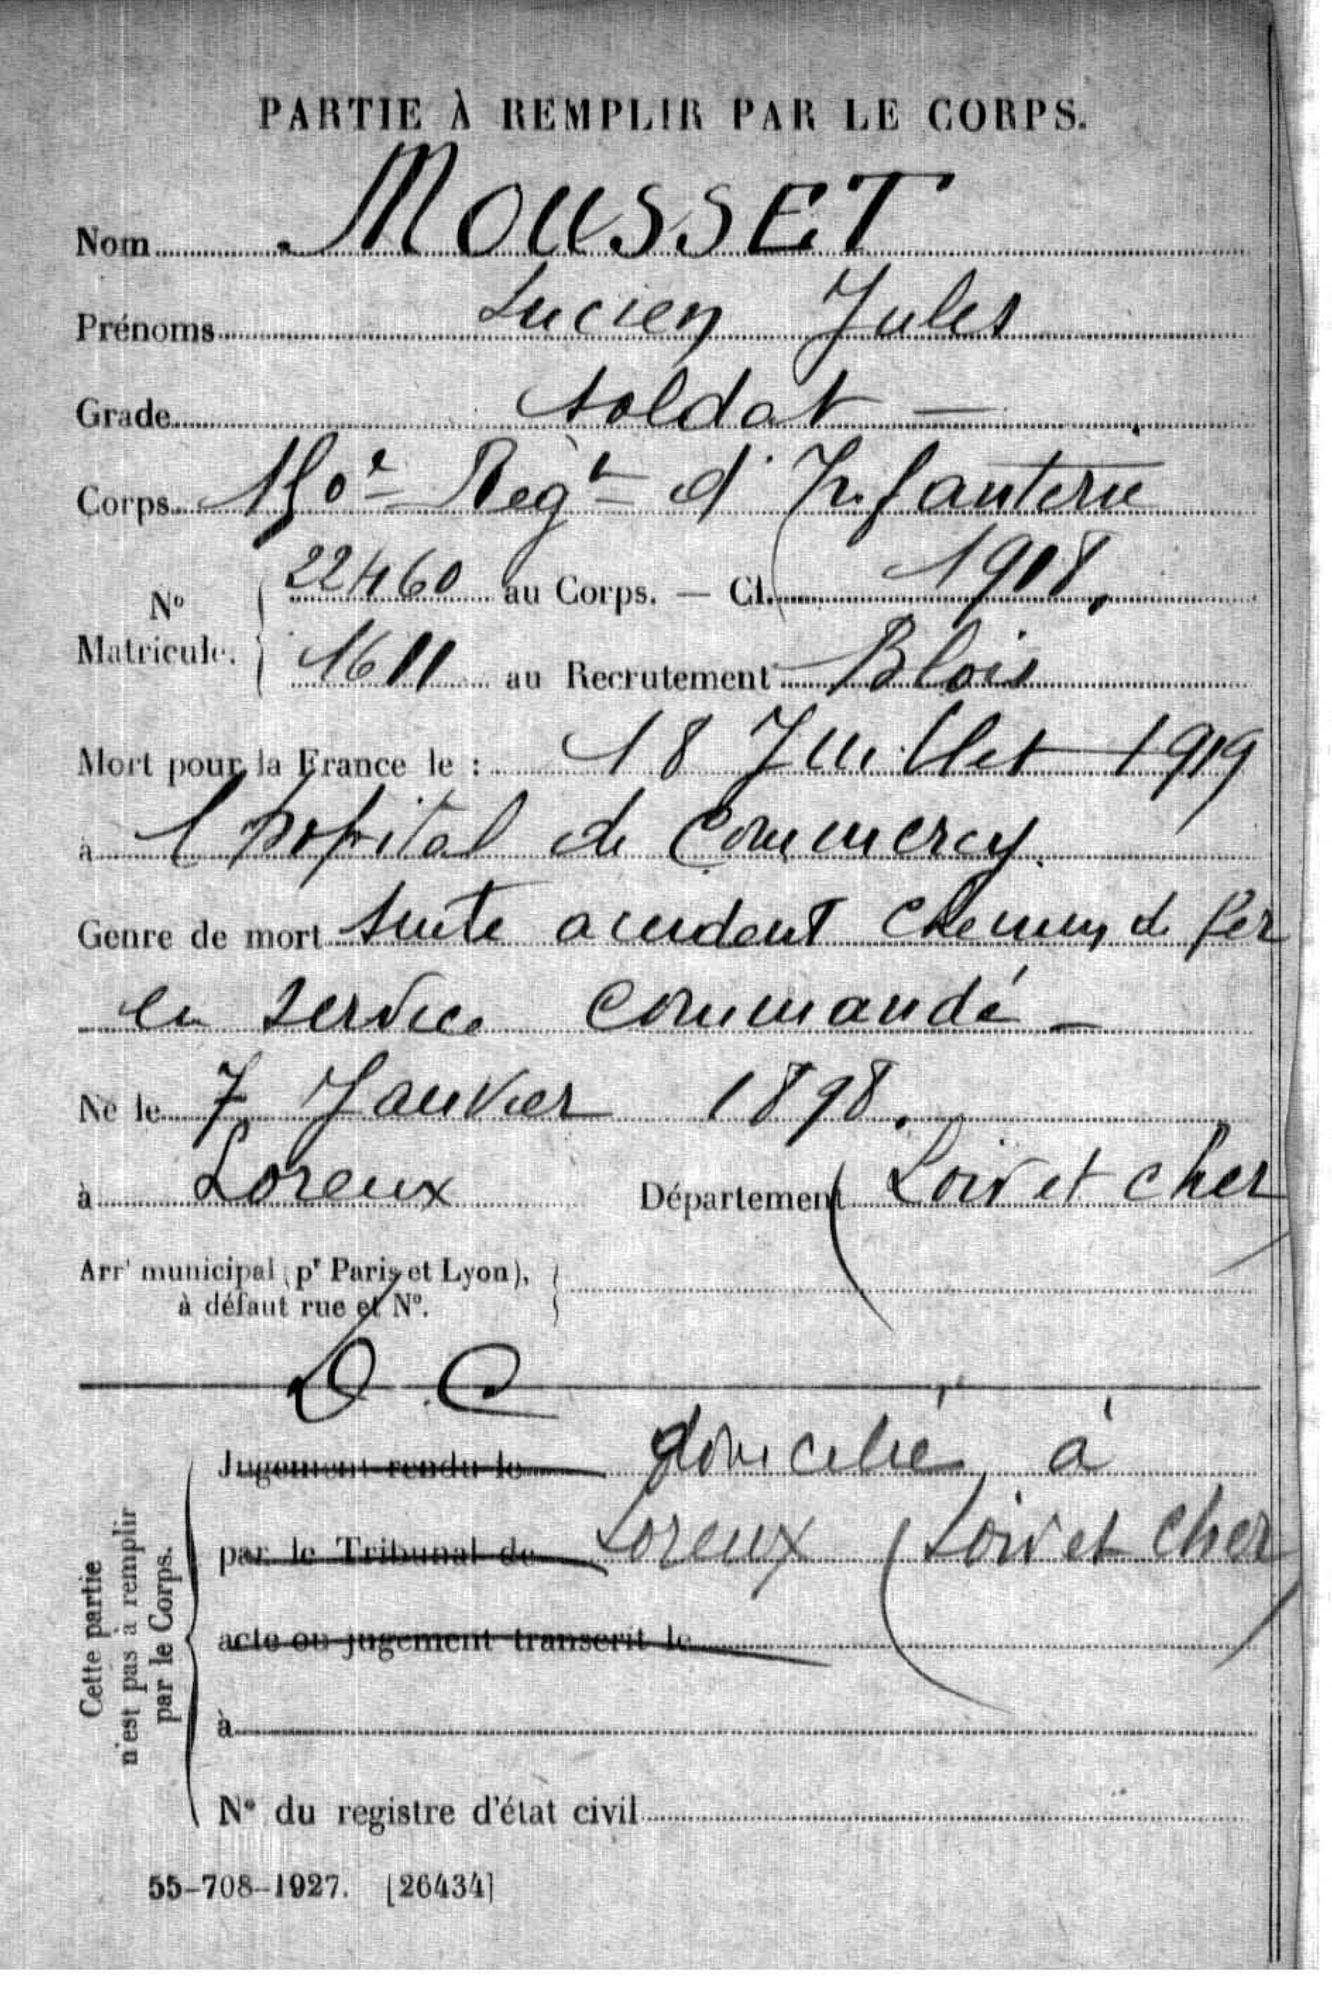 PARTIE À REMPLIR PAR LE CORPS.
Nom MOUSSET
Prénoms Lucien Jules
Grade soldat —
Corps 150e Régt d'Infanterie
No Matricule. 22460 au Corps. — Cl. 1918.
1611 au Recrutement Blois
Mort pour la France le : 18 Juillet 1919
à l'hopital de Commercy.
Genre de mort suite accident chemin de fer
en service commandé —
Né le 7 Janvier 1898.
à Loreux Département Loir et cher
Arrt municipal (pr Paris et Lyon),
à défaut rue et No.
D.C
Jugement rendu le domicilié à
par le Tribunal de Loreux (Loir et Cher)
acte ou jugement transcrit le
à
No du registre d'état civil
Cette partie
n'est pas à remplir
par le Corps.
55-708-1927. [26434]